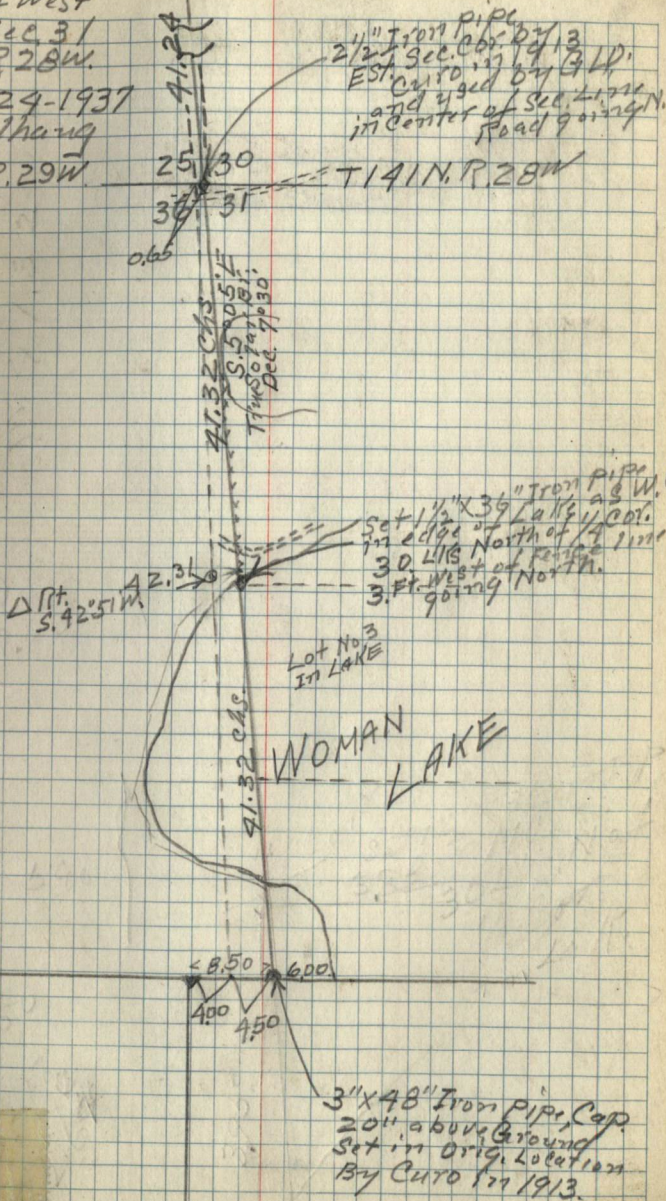 West
Sec 31
R. 28W.
24-1937
R. 29W.
41.24
2½" Iron pipe
Est. Sec. Cor. by
Curo in 1913
and used by G.L.O.
in Center of Sec. Line
Road going N.
25 30
36 31
T 141 N. R. 28W
0.65
41.32 Chs
S. 5°05' E
True Solar Br.
Dec. 7°30'
Set 1½" X 36" Iron pipe
in edge of Lake as W.
30 Lks North of ¼ Cor.
3. Ft. West of Fence line
going North.
42.31
Δ Pt.
S. 42°51' W.
Lot No 3
In LAKE
41.32 Chs.
WOMAN
LAKE
8.50
6.00
4.00
4.50
3" X 48" Iron pipe, Cap.
20" above Ground
Set in Orig. Location
By Curo in 1913